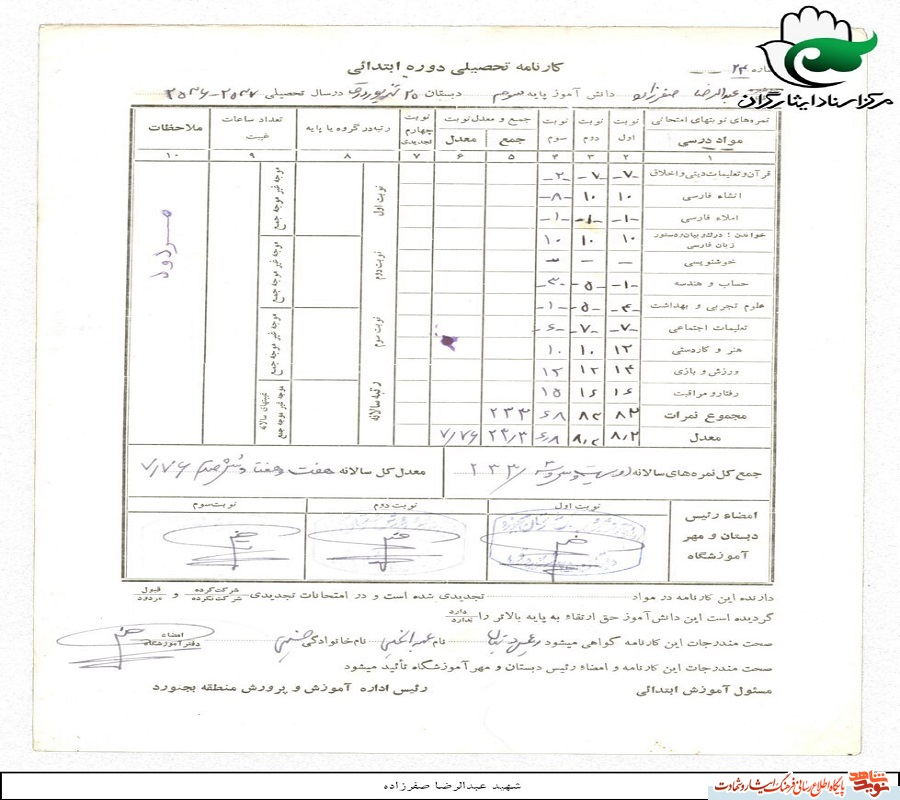 مرکز اسناد ایثارگران
کارنامه تحصیلی دوره ابتدائی
۲۴
عبدالرضا صفرزاده دانش آموز پایه سوم دبستان ۲۵ شهریور در سال تحصیلی ۲۵۳۶-۲۵۳۷
نمره‌های نوبتهای امتحانی نوبت اول نوبت دوم نوبت سوم جمع و معدل نوبت نوبت چهارم تجدیدی رتبه در گروه یا پایه تعداد ساعات غیبت ملاحظات
مواد درسی جمع معدل
۱ ۲ ۳ ۴ ۵ ۶ ۷ ۸ ۹ ۱۰
قرآن و تعلیمات دینی و اخلاق -۷- -۷- -۲-
انشاء فارسی ۱۰ ۱۰ -۸-
املاء فارسی -۱- -۱- -۱-
خواندن : درک و بیان و دستور زبان فارسی ۱۰ ۱۰ ۱۰
خوشنویسی — — —
حساب و هندسه -۱- -۵- -۳-
علوم تجربی و بهداشت -۴- -۵- -۱-
تعلیمات اجتماعی -۷- -۷- -۶-
هنر و کاردستی ۱۲ ۱۰ ۱۰
ورزش و بازی ۱۴ ۱۲ ۱۲
رفتار و مراقبت ۱۶ ۱۶ ۱۵
مجموع نمرات ۸۲ ۸۳ ۶۸ ۲۳۳
معدل ۸/۲ ۸/۳ ۶/۸ ۲۳/۳ ۷/۷۶
نوبت اول
نوبت دوم
نوبت سوم
رتبه سالانه
موجه غیر موجه جمع
موجه غیر موجه جمع
موجه غیر موجه جمع
غیبتهای سالانه
موجه غیر موجه جمع
مردود
جمع کل نمره‌های سالانه دویست و سی و سه ۲۳۳ معدل کل سالانه هفت و هفتاد و شش صدم ۷/۷۶
امضاء رئیس دبستان و مهر آموزشگاه
نوبت اول نوبت دوم نوبت سوم
دارنده این کارنامه در مواد تجدیدی شده است و در امتحانات تجدیدی شرکت کرده شرکت نکرده و قبول مردود
گردیده است این دانش آموز حق ارتقاء به پایه بالاتر را دارد ندارد
صحت مندرجات این کارنامه گواهی میشود رئیس دبستان نام نام خانوادگی امضاء دفتر آموزشگاه
صحت مندرجات این کارنامه و امضاء رئیس دبستان و مهر آموزشگاه تأئید میشود
مسئول آموزش ابتدائی رئیس اداره آموزش و پرورش منطقه بجنورد
شهید عبدالرضا صفرزاده
نوید شاهد پایگاه اطلاع رسانی فرهنگ ایثار و شهادت